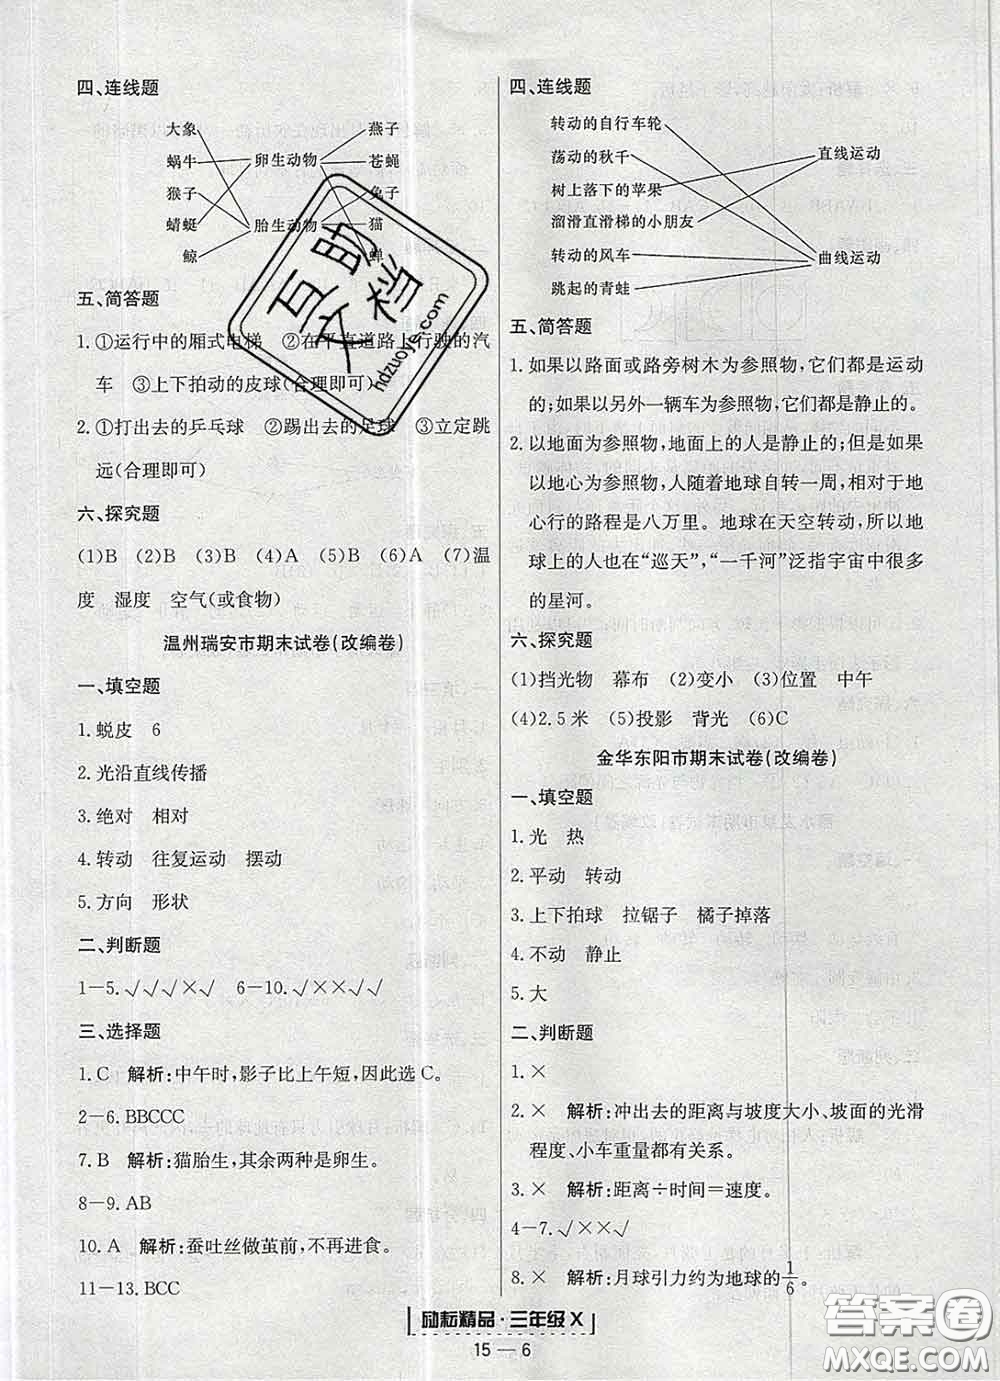 四、连线题
大象
蜗牛
猴子
蜻蜓
鲸
卵生动物
胎生动物
燕子
苍蝇
兔子
猫
蝉
五、简答题
1.①运行中的厢式电梯 ②在平直道路上行驶的汽
车 ③上下拍动的皮球(合理即可)
2.①打出去的乒乓球 ②踢出去的足球 ③立定跳
远(合理即可)
六、探究题
(1)B (2)B (3)B (4)A (5)B (6)A (7)温
度 湿度 空气(或食物)
温州瑞安市期末试卷(改编卷)
一、填空题
1.蜕皮 6
2.光沿直线传播
3.绝对 相对
4.转动 往复运动 摆动
5.方向 形状
二、判断题
1－5.√√√×√ 6－10.√××√√
三、选择题
1.C 解析:中午时,影子比上午短,因此选C。
2－6.BBCCC
7.B 解析:猫胎生,其余两种是卵生。
8－9.AB
10.A 解析:蚕吐丝做茧前,不再进食。
11－13.BCC
四、连线题
转动的自行车轮
荡动的秋千
树上落下的苹果
溜滑直滑梯的小朋友
转动的风车
跳起的青蛙
直线运动
曲线运动
五、简答题
1.如果以路面或路旁树木为参照物,它们都是运动
的;如果以另外一辆车为参照物,它们都是静止的。
2.以地面为参照物,地面上的人是静止的;但是如果
以地心为参照物,人随着地球自转一周,相对于地
心行的路程是八万里。地球在天空转动,所以地
球上的人也在“巡天”,“一千河”泛指宇宙中很多
的星河。
六、探究题
(1)挡光物 幕布 (2)变小 (3)位置 中午
(4)2.5米 (5)投影 背光 (6)C
金华东阳市期末试卷(改编卷)
一、填空题
1.光 热
2.平动 转动
3.上下拍球 拉锯子 橘子掉落
4.不动 静止
5.大
二、判断题
1.×
2.× 解析:冲出去的距离与坡度大小、坡面的光滑
程度、小车重量都有关系。
3.× 解析:距离÷时间＝速度。
4－7.√××√
8.× 解析:月球引力约为地球的1/6
励耘精品·三年级X
15—6
互助
文档
hdzuoye.com
答案圈
MXQE.COM